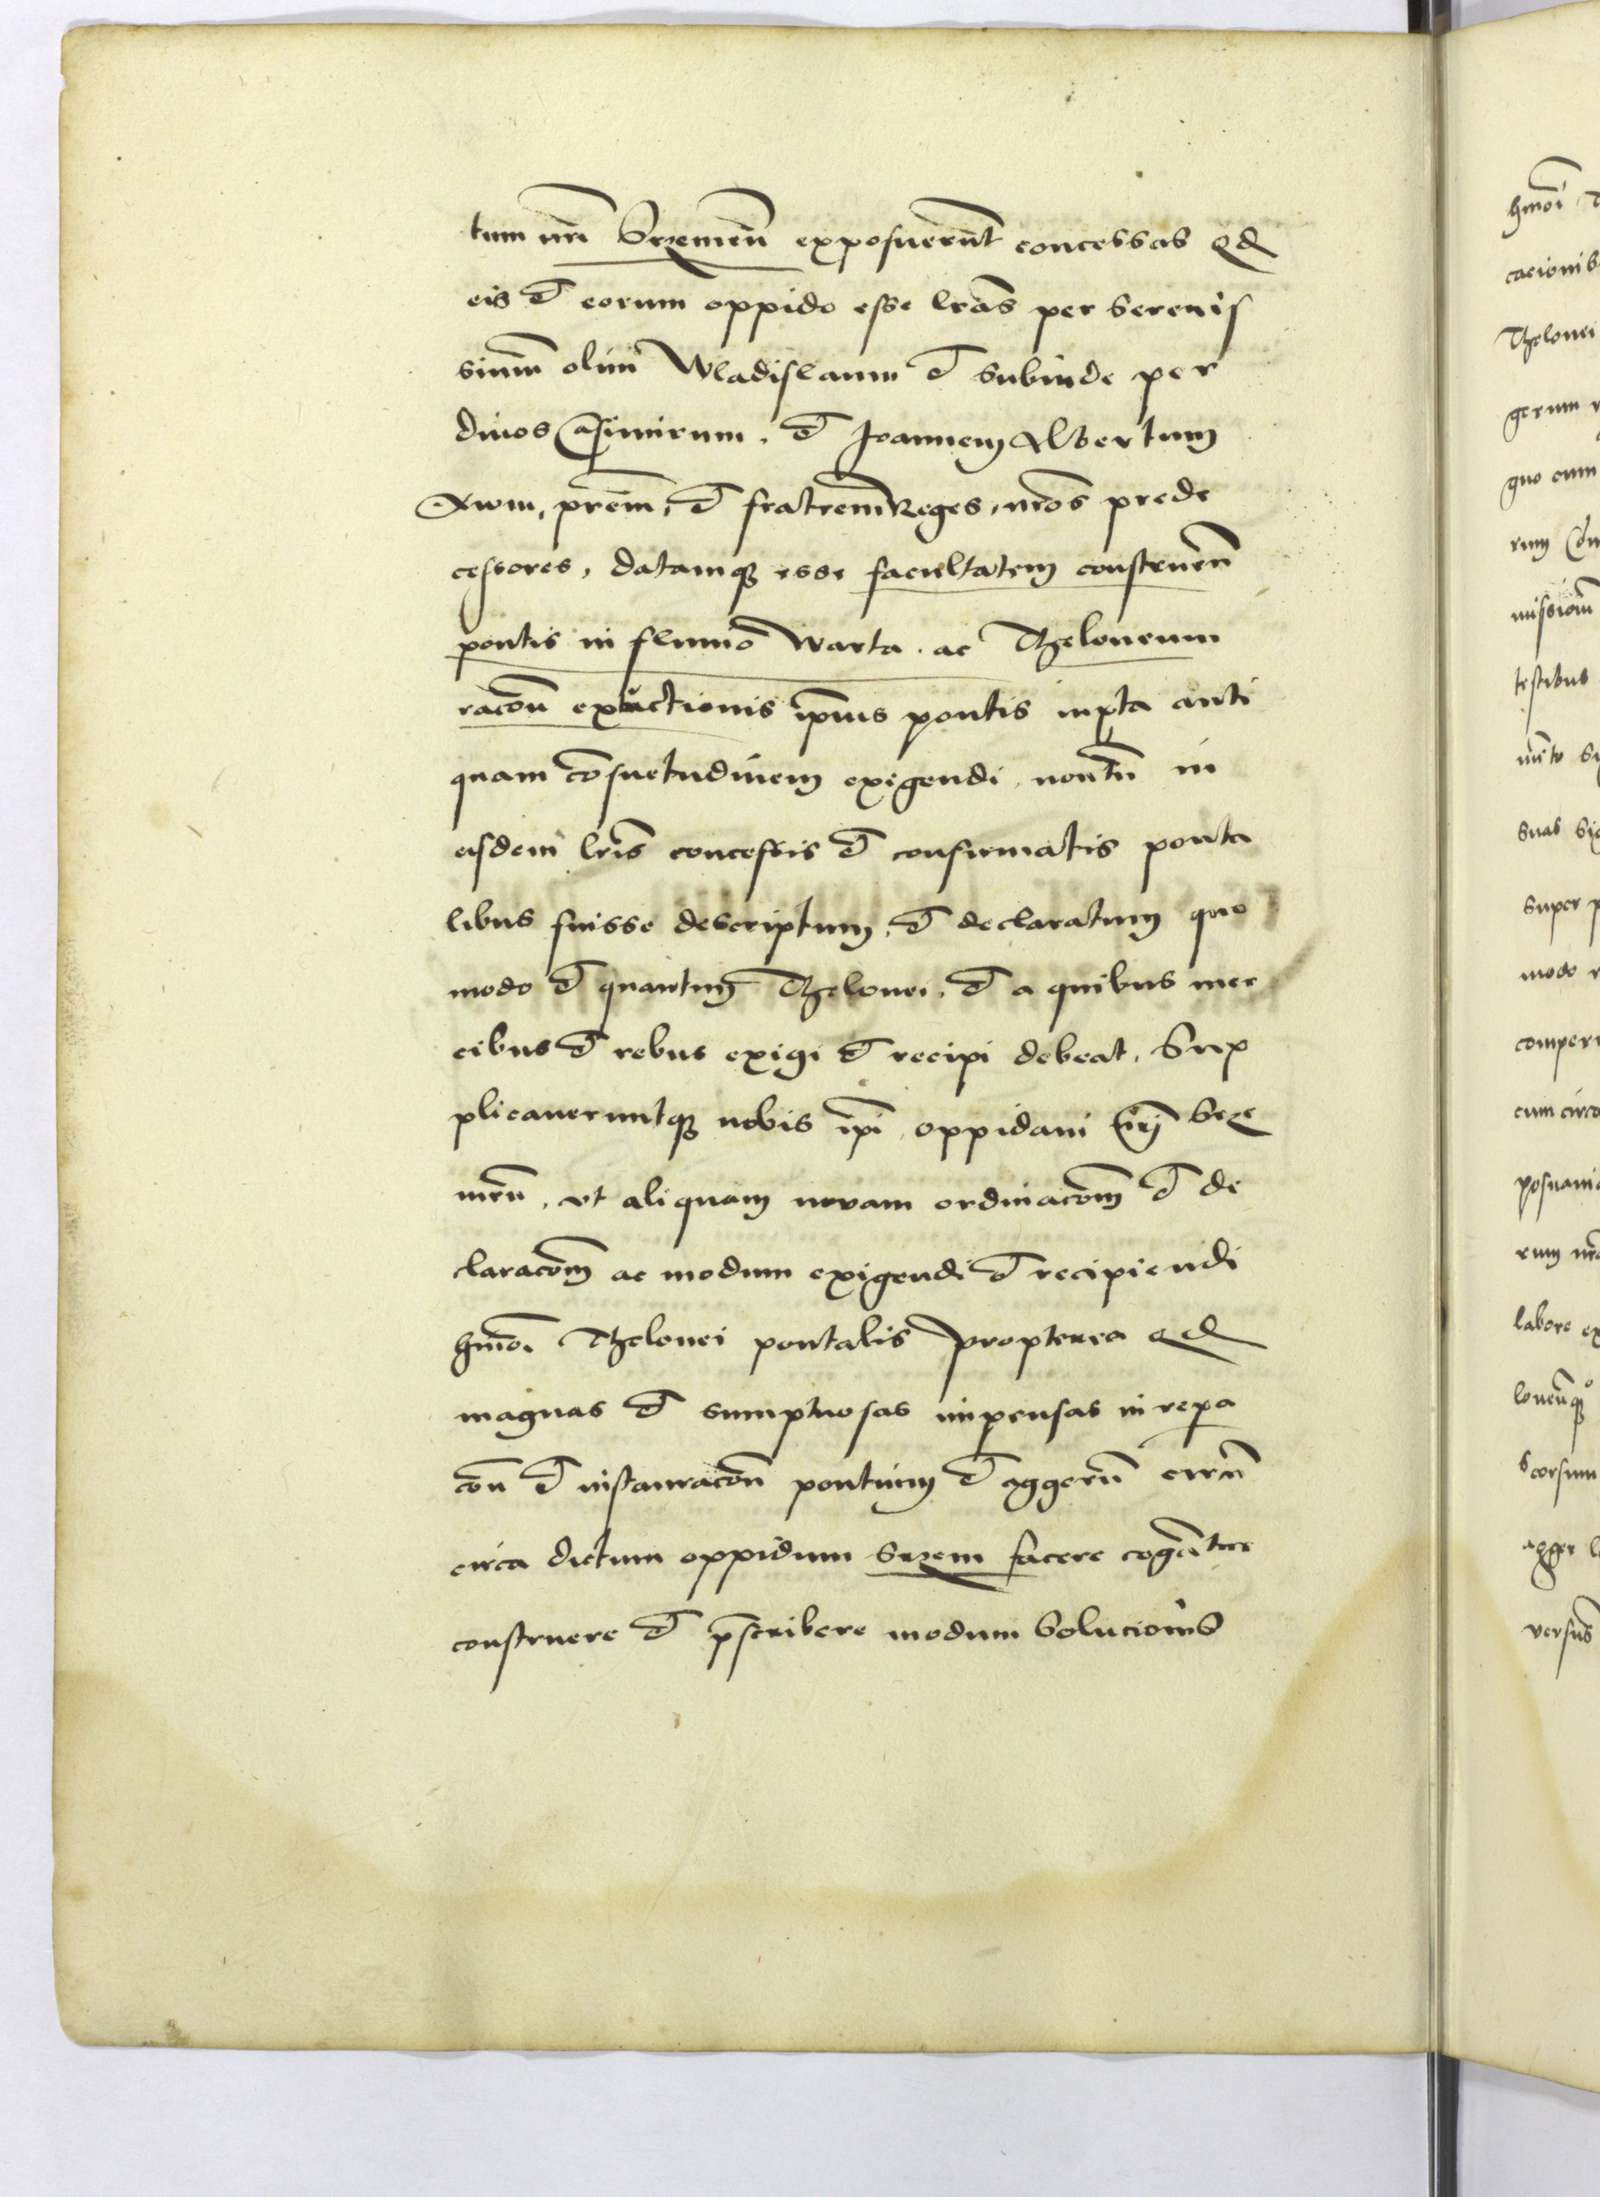 tum nrī Srzemeñ exposuerūnt concessas qd
eis et eorum oppido esse lrās per serenis
simum olim Wladislaum et subinde per
divos Casimirum, et Joannem Albertum
Avum, prēm, et fratrem Reges, nrōs prede
cessores, datamqȝ esse facultatem construeñ
pontis in flumō Warta. ac Theloneum
racōn exactionis ipīus pontis iuxta anti
quam cōsuetudinem exigendi, non tn̄ in
eisdem lrīs concessis et confirmatis ponta
libus fuisse descriptum, et declaratum quo
modo et quantum Thelonei, et a quibus mer
cibus et rebus exigi et recipi debeat, Sup
plicaveruntqȝ nobis ipī oppidani nrī Srze
meñ, ut aliquam novam ordinacōm et de
claracōm ac modum exigendi et recipiendi
hmōi Thelonei pontalis propterea qd
magnas et sumptuosas impensas in repa
cōn et instauracōn pontium et aggerū
circa dictum oppidum Srzem facere cogātur
construere et p̄scribere modum solucionis
hmōi
Thelonei
gerum
quo cum
rum
missionē
testibus
suas
super
modo
cum circa
rum
labore
seorsum
agger
versus